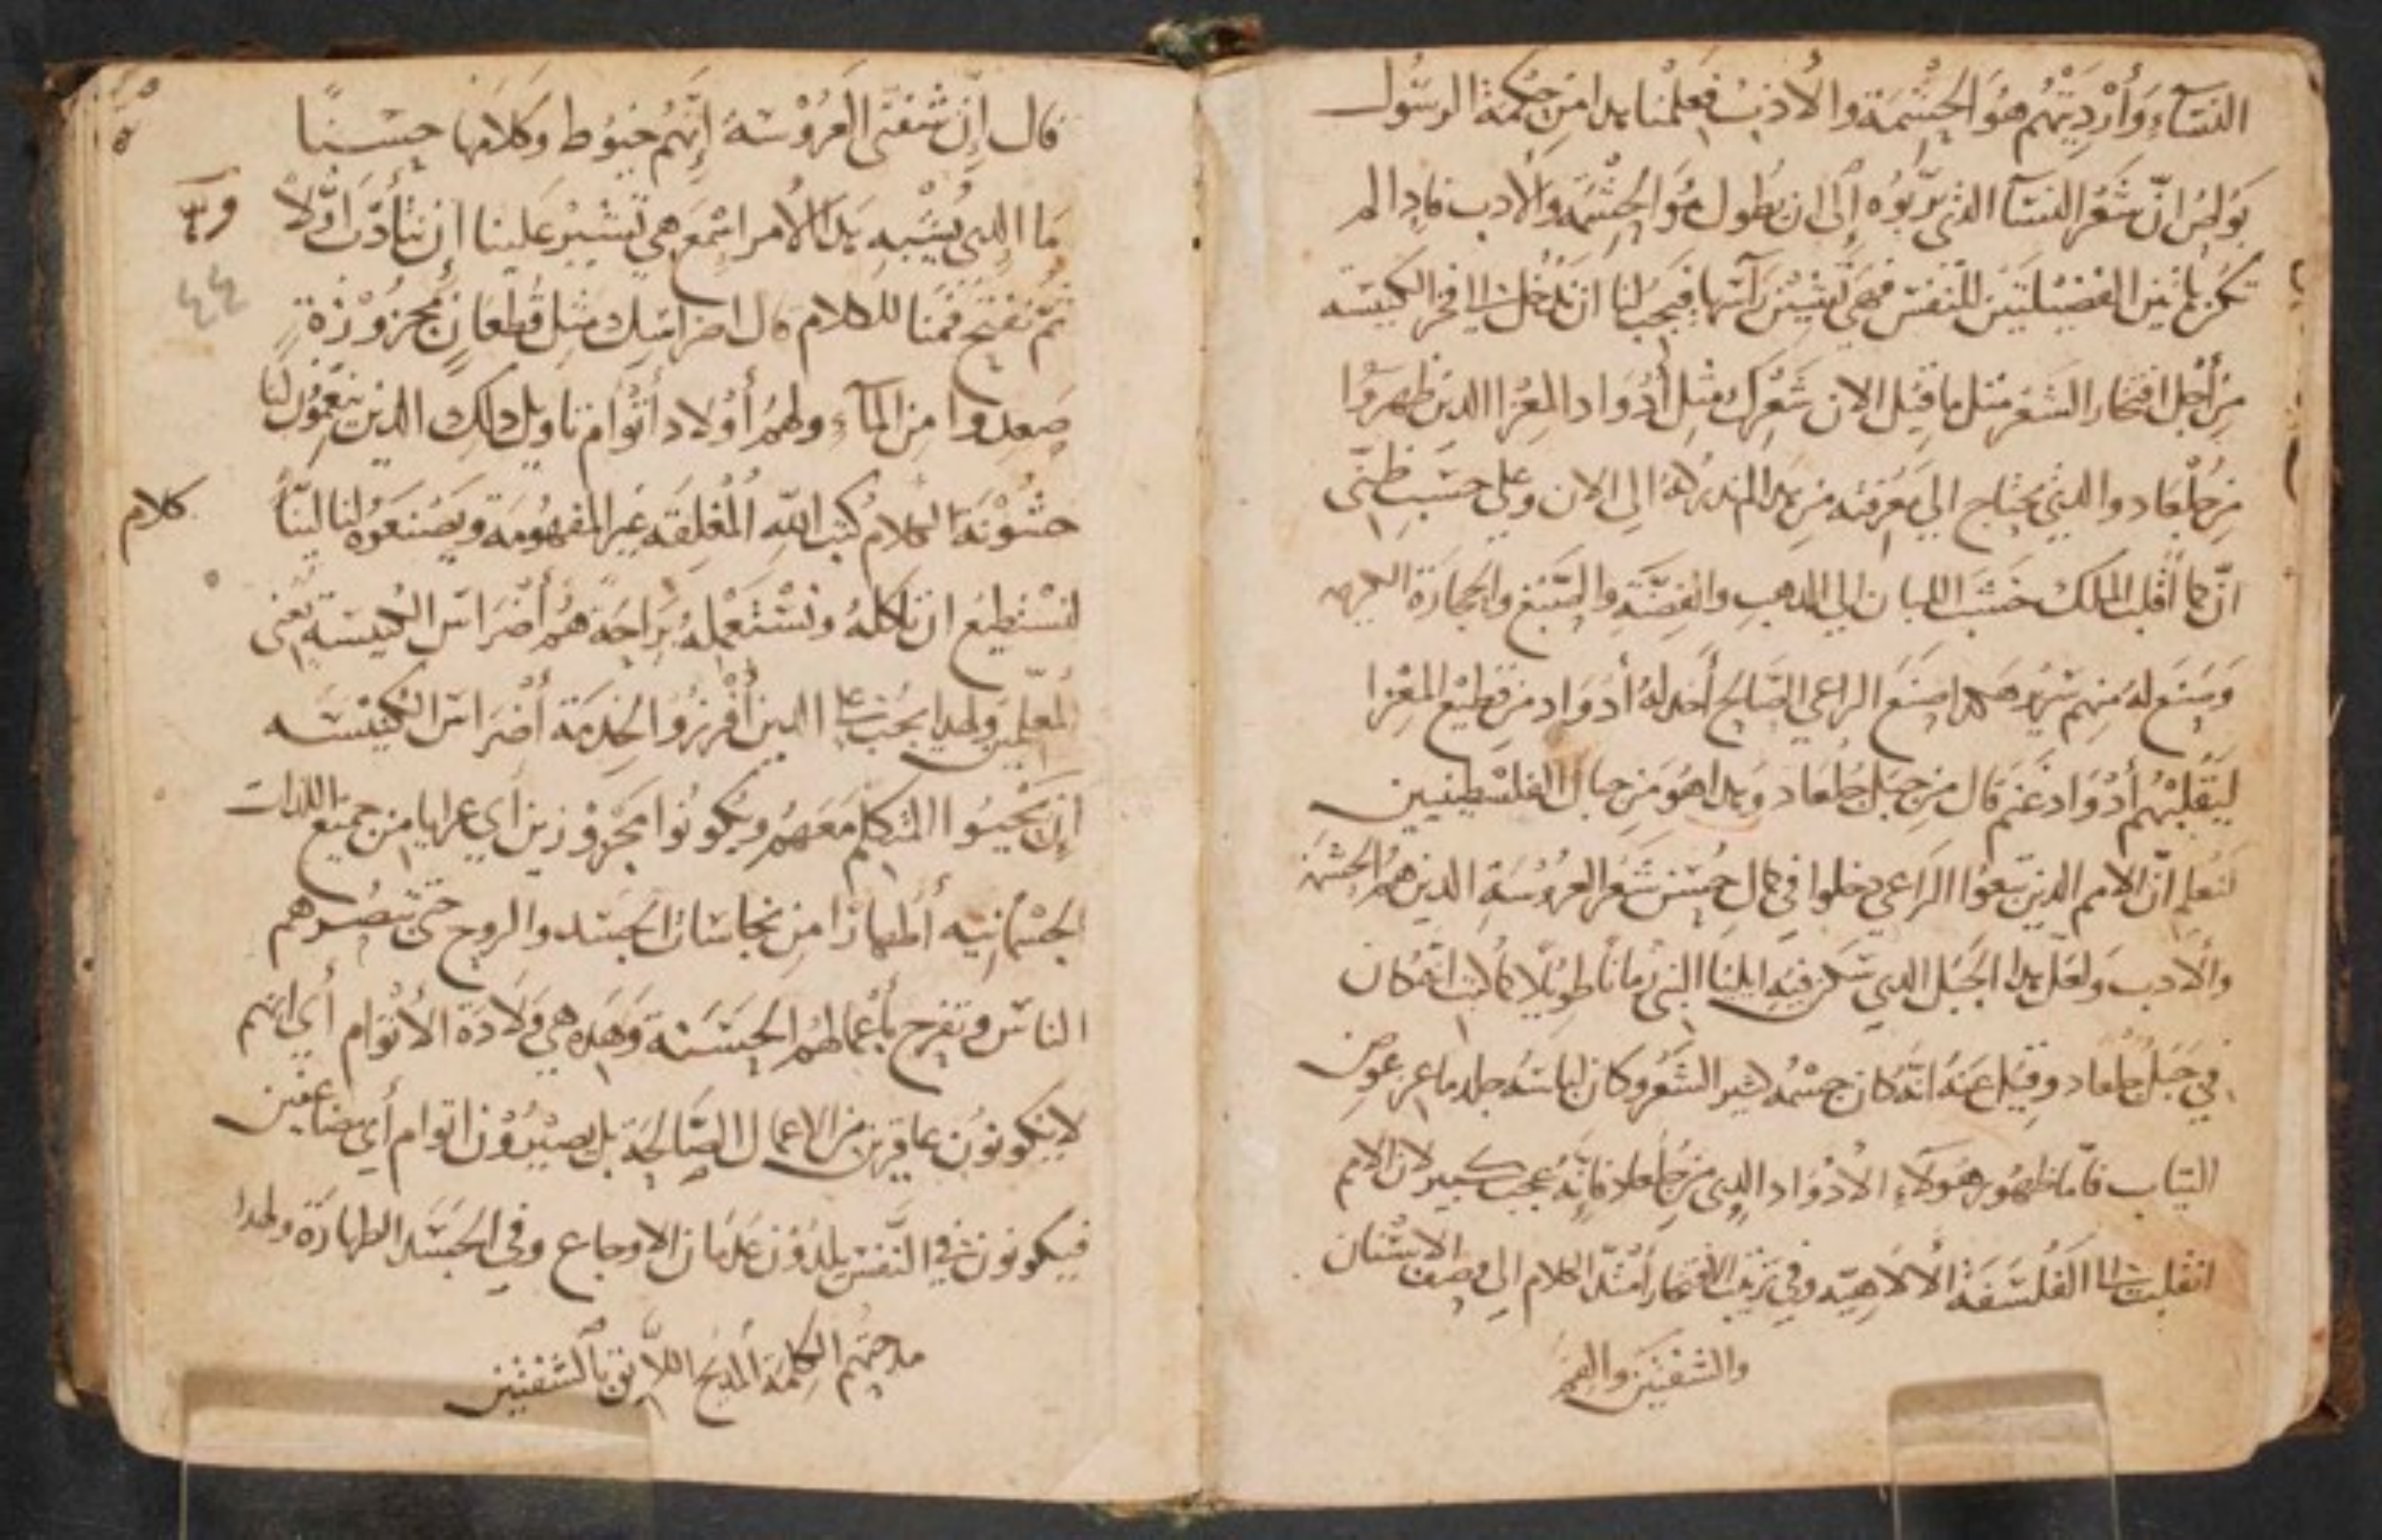 النسآء وأرديتهم هو الحشمة والأدب فعلمنا بدا من حكمة الرسول
بولس انّ شعر النسآ الذي يربوه إلى ان يطول هو الحشمة والأدب فادا لم
تكن هاتين الفضيلتين للنفس فهي تشين رآسها فيجب لنا ان ندخل الى فخر الكنيسه
من أجل افتخار الشعر مثل ما قيل الان شعرك مثل أدواد المعزا الدين ظهروا
من جلعاد والدي يحتاج الى معرفته من هدا المندكر له الى الان وعلى حسب ظني
انّ كما أقلب الملك خشب اللبان الى الدهب والفضّة والسبغ والحجارة الكريمه
وصنع له منهم سرير هكدا صنع الراعي الصالح أخد له أدواد من قطيع المعزا
ليقلبهم أدواد غنم قال من جبل جلعاد وهدا هو من جبال الفلسطينيين
لنعلم انّ الامم الدين تبعوا الراعي دخلوا في كمال حسن شعر العروسة الدين هم الحشمة
والأدب ولعل هدا الجبل الدي سكن فيه ايليا النبي زمانًا طويلا كالبا انه كان
في جبل جلعاد وقيل عنه انّه كان جسمه كثير الشعر وكان لباسه جلد ماعز عوض
التياب فأما ظهور هولآء الادواد الدي من جلعاد فإنّه عجب كبير لان الامم
انقلبت الى الفلسفة الالاهيّه وفي ترتيب الافتخار امتدّ الكلام الى وصف الاسنان
والشفتين والفم
قال إنّ شفتي العروسة إنّهم خيوط وكلامها حسنًا
ما الدي يشبه هدا الأمر اسمع هي تشير علينا إن نتأدّب اوّلاً
ثمّ نفتح فمنا للكلام قال اضراسك مثل قطعان مجزوزة
صعدوا من المآء ولهم أولاد أتوام تاويل دلك الدين ينعمون لنا
خشونة الكلام كتب الله المغلقه غير المفهومة ويصنعوه لنا ليّنًا
كلام
لنستطيع ان ناكله ونستعمله براحة هم أضراس الكنيسة يعني
المعلمين ولهدا يجب على الدين أفرزوا لخدمة أضراس الكنيسه
ان يحبوا المتكلم معهم ويكونوا مجزوزين أي عرايا من جميع اللدات
الجسمانيه أطهارًا من نجاسات الجسد والروح حتى تبصرهم
الناس وتفرح بأعمالهم الحسنة وهده هي ولادة الأتوام أي انهم
لا يكونون عاقرين من الاعمال الصالحة بل يصيرون اتوام أي مضاعفين
فيكونون في النفس يلدون عدمان الاوجاع وفي الجسد الطهارة ولهدا
مدحتهم الكلمة المديح اللايق بالشفتين
٤٤